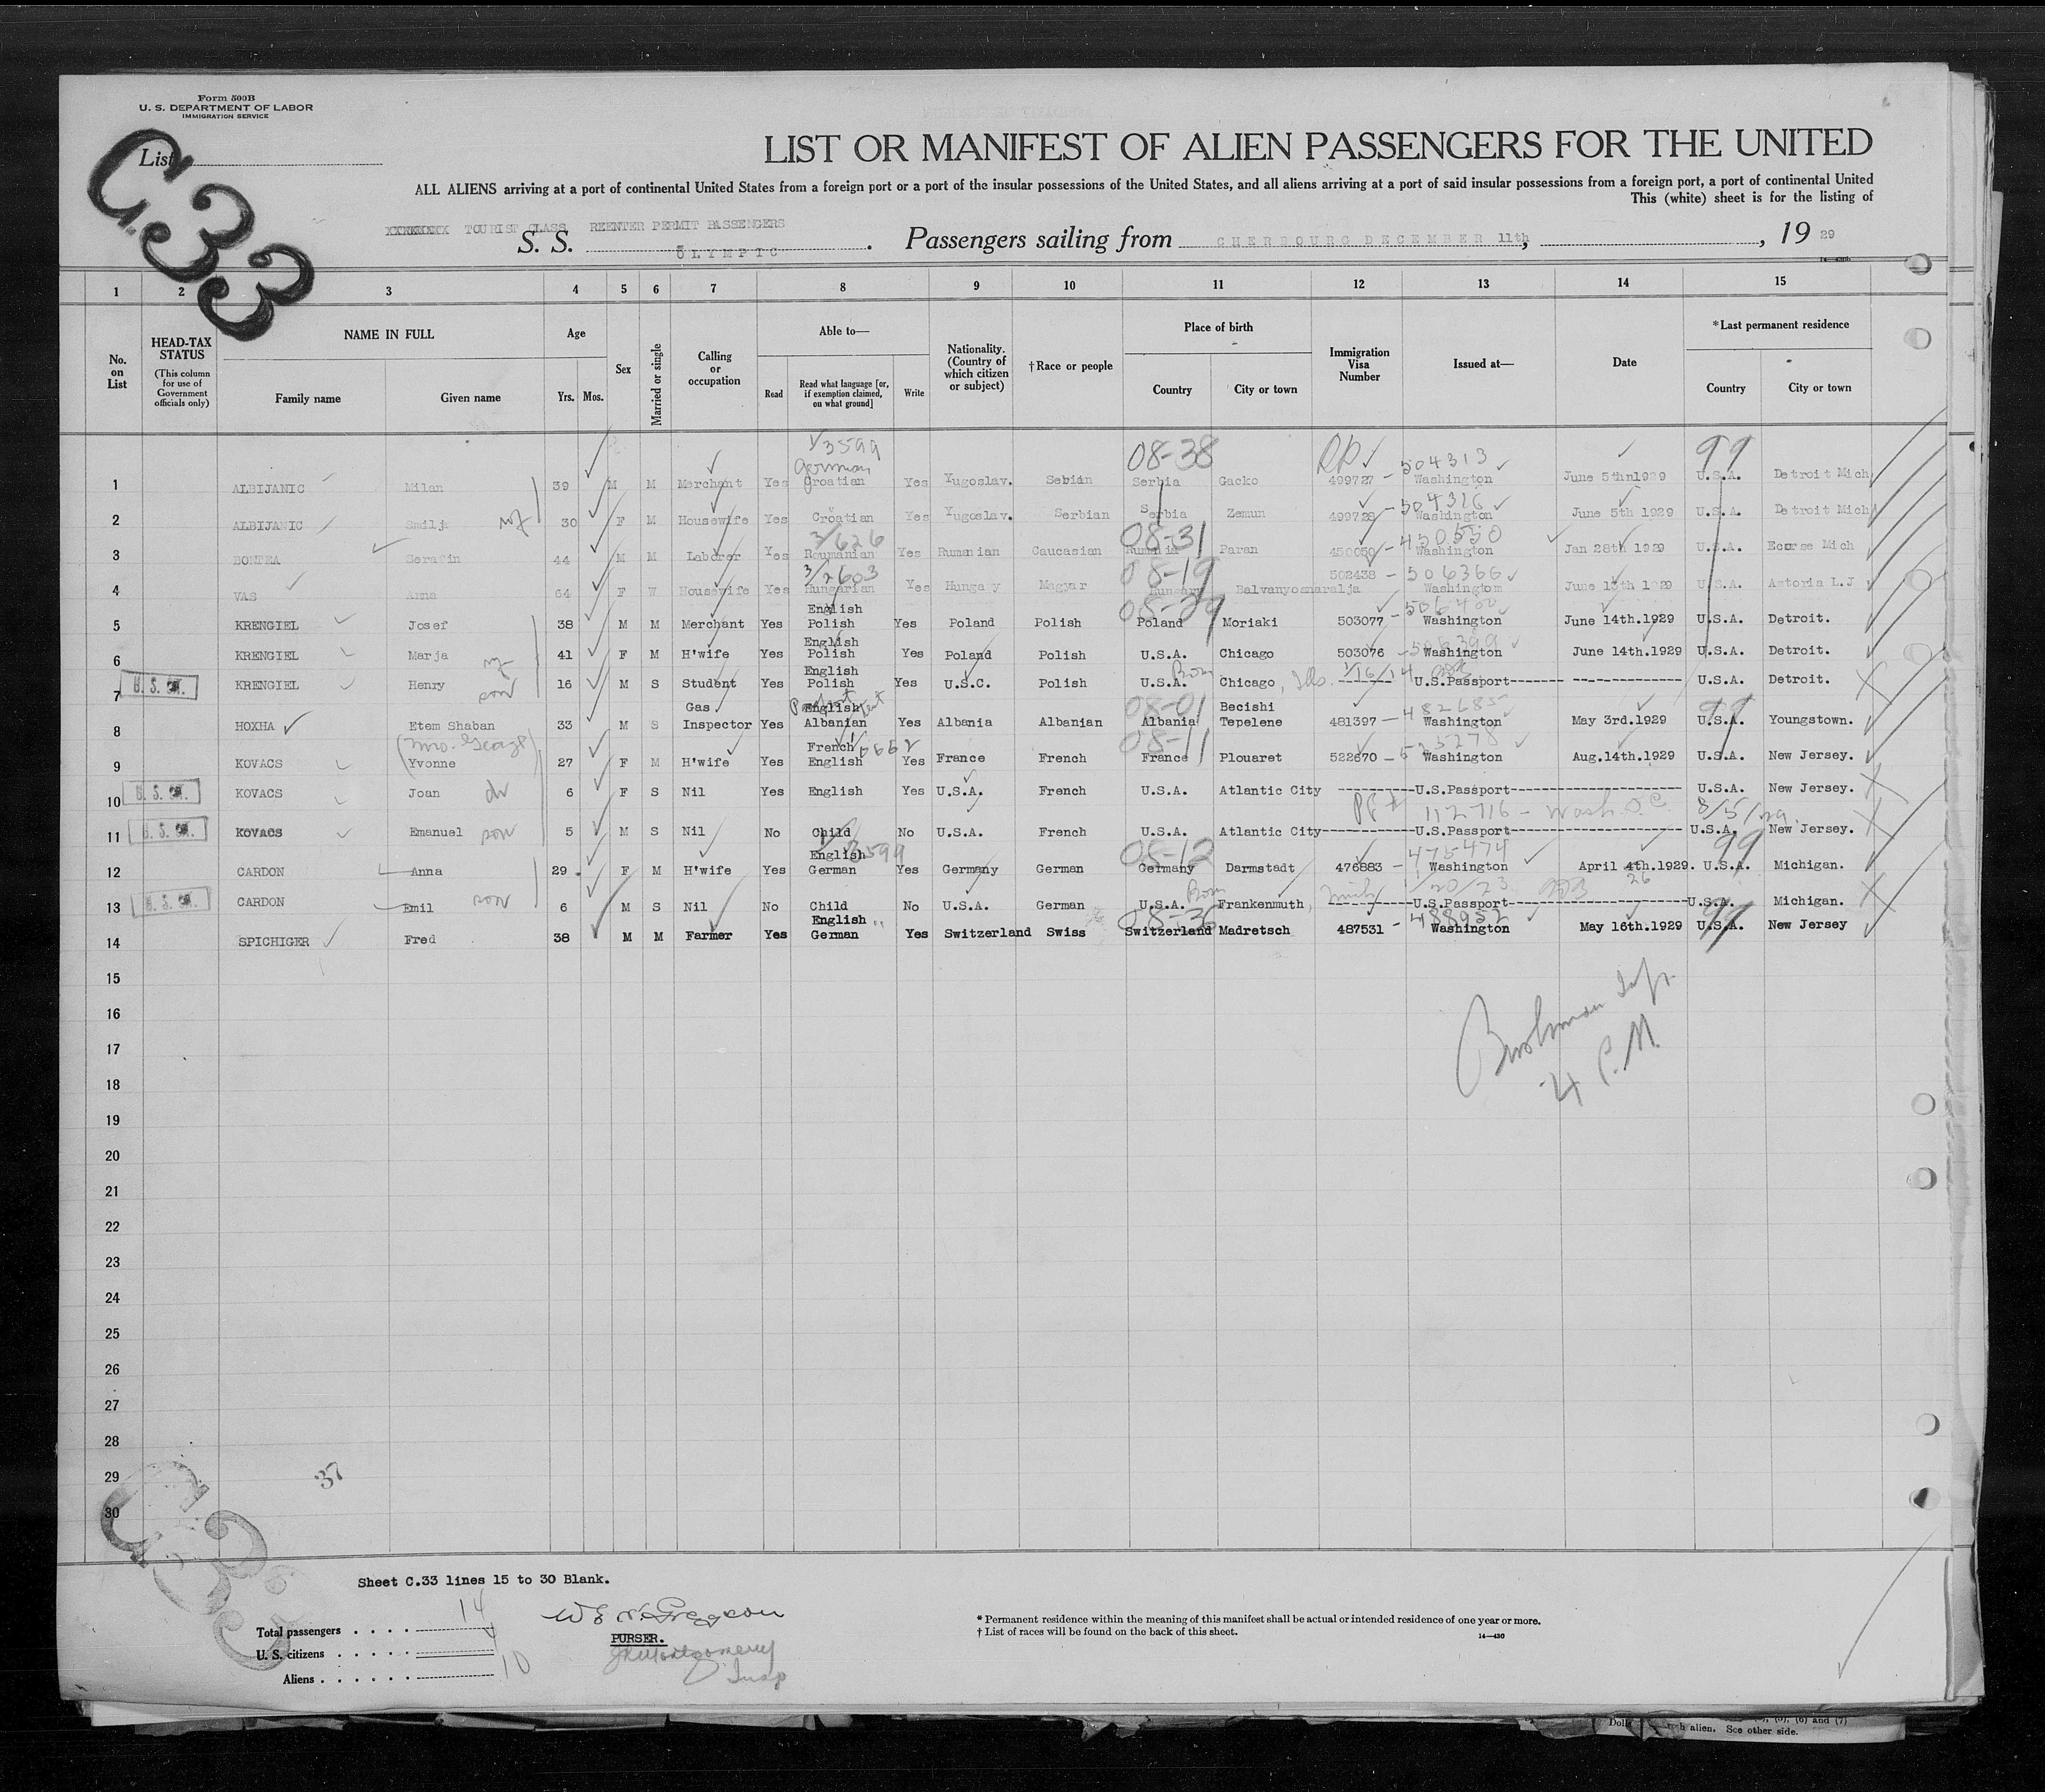 Form 500B
U. S. DEPARTMENT OF LABOR
IMMIGRATION SERVICE
List
C.33
LIST OR MANIFEST OF ALIEN PASSENGERS FOR THE UNITED
ALL ALIENS arriving at a port of continental United States from a foreign port or a port of the insular possessions of the United States, and all aliens arriving at a port of said insular possessions from a foreign port, a port of continental United
This (white) sheet is for the listing of
TOURIST CLASS REENTER PERMIT PASSENGERS
S. S. OLYMPIC . Passengers sailing from CHERBOURG DECEMBER 11th, , 19 29
1 2 3 4 5 6 7 8 9 10 11 12 13 14 15
No. on List
HEAD-TAX STATUS (This column for use of Government officials only)
NAME IN FULL
Family name Given name
Age
Yrs. Mos.
Sex
Married or single
Calling or occupation
Able to—
Read Read what language [or, if exemption claimed, on what ground] Write
Nationality. (Country of which citizen or subject)
†Race or people
Place of birth
Country City or town
Immigration Visa Number
Issued at—
Date
*Last permanent residence
Country City or town
1/3599 08-38 RP 504313 99
German
1 ALBIJANIC Milan 39 M M Merchant Yes Croatian Yes Yugoslav. Sebian Serbia Gacko 499727 - Washington June 5thn1929 U.S.A. Detroit Mich
504316
2 ALBIJANIC Smilja wf 30 F M Housewife Yes Croatian Yes Yugoslav. Serbian Serbia Zemun 499728 - Washington June 5th 1929 U.S.A. Detroit Mich
3/626 08-31 450550
3 BONTEA Serafin 44 M M Laborer Yes Roumanian Yes Rumanian Caucasian Rumania Paran 450050 - Washington Jan 28th 1929 U.S.A. Ecorse Mich
3/2603 08-19 502438 - 506366
4 VAS Anna 64 F W Housewife Yes Hungarian Yes Hungary Magyar Hungary Balvanyosmaralja Washington June 13th 1929 U.S.A. Astoria L.J
English 08-29 506400
5 KRENGIEL Josef 38 M M Merchant Yes Polish Yes Poland Polish Poland Moriaki 503077 - Washington June 14th.1929 U.S.A. Detroit.
English 506399
6 KRENGIEL Marja wf 41 F M H'wife Yes Polish Yes Poland Polish U.S.A. Chicago 503076 - Washington June 14th.1929 U.S.A. Detroit.
English Born 1/16/14
7 KRENGIEL Henry son 16 M S Student Yes Polish Yes U.S.C. Polish U.S.A. Chicago, Ills. U.S.Passport U.S.A. Detroit.
Gas English 08-01 Becishi 482685 99
8 HOXHA Etem Shaban 33 M S Inspector Yes Albanian Yes Albania Albanian Albania Tepelene 481397 - Washington May 3rd.1929 U.S.A. Youngstown.
(Mrs. George) French 1/6662 08-11 525278
9 KOVACS Yvonne 27 F M H'wife Yes English Yes France French France Plouaret 522670 - Washington Aug.14th.1929 U.S.A. New Jersey.
10 KOVACS Joan dr 6 F S Nil Yes English Yes U.S.A. French U.S.A. Atlantic City U.S.Passport U.S.A. New Jersey.
PP # 112716 - Wash. D.C. 8/5/29.
11 KOVACS Emanuel son 5 M S Nil No Child No U.S.A. French U.S.A. Atlantic City U.S.Passport U.S.A. New Jersey.
English 1/3599 08-12 475474 99
12 CARDON Anna 29 F M H'wife Yes German Yes Germany German Germany Darmstadt 476883 - Washington April 4th.1929. U.S.A. Michigan.
Born 1/20/23 26
13 CARDON Emil son 6 M S Nil No Child No U.S.A. German U.S.A. Frankenmuth, U.S.Passport U.S.A. Michigan.
English " 08-36 488952 99
14 SPICHIGER Fred 38 M M Farmer Yes German Yes Switzerland Swiss Switzerland Madretsch 487531 - Washington May 16th.1929 U.S.A. New Jersey
15
16
17
4 P.M.
18
19
20
21
22
23
24
25
26
27
28
29 37
30
Sheet C.33 lines 15 to 30 Blank.
Total passengers . . . . 14
U. S. citizens . . . . . 4
Aliens . . . . . . 10
PURSER.
JR Montgomery
Insp
* Permanent residence within the meaning of this manifest shall be actual or intended residence of one year or more.
† List of races will be found on the back of this sheet.
14—430
(6) and (7)
alien. See other side.